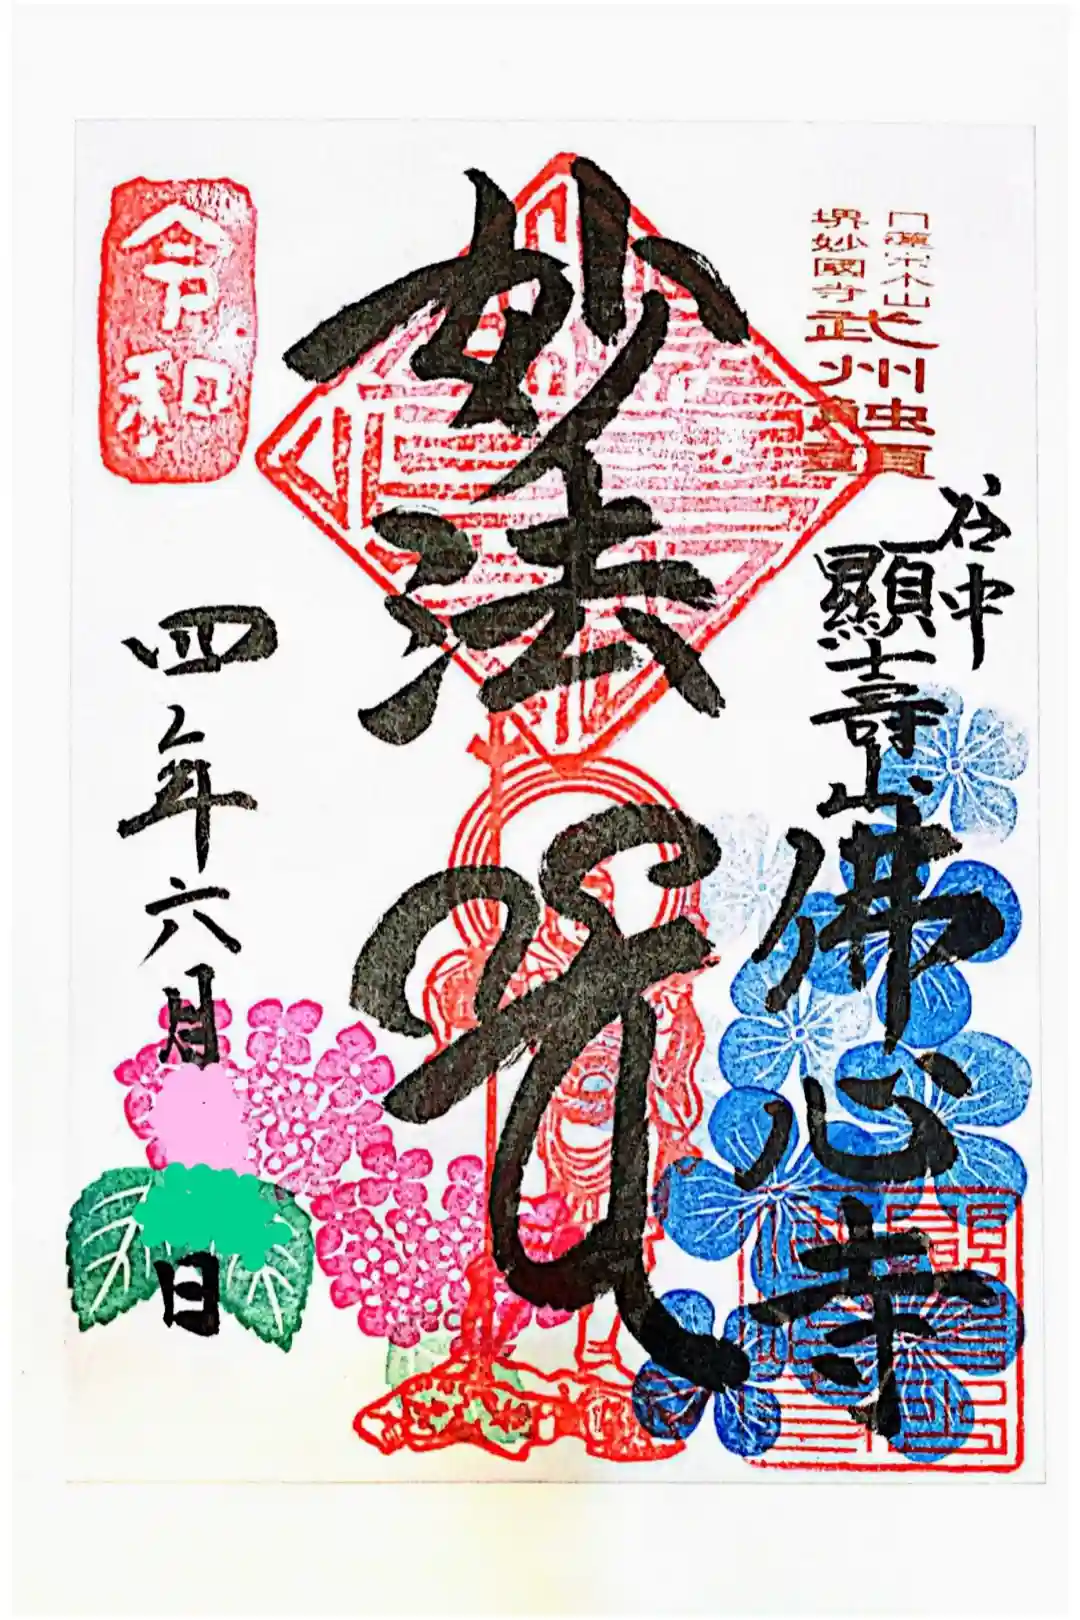 日蓮宗本山
堺妙國寺
武州触頭
谷中
顯壽山
佛心寺
妙法
令和
四年六月
日